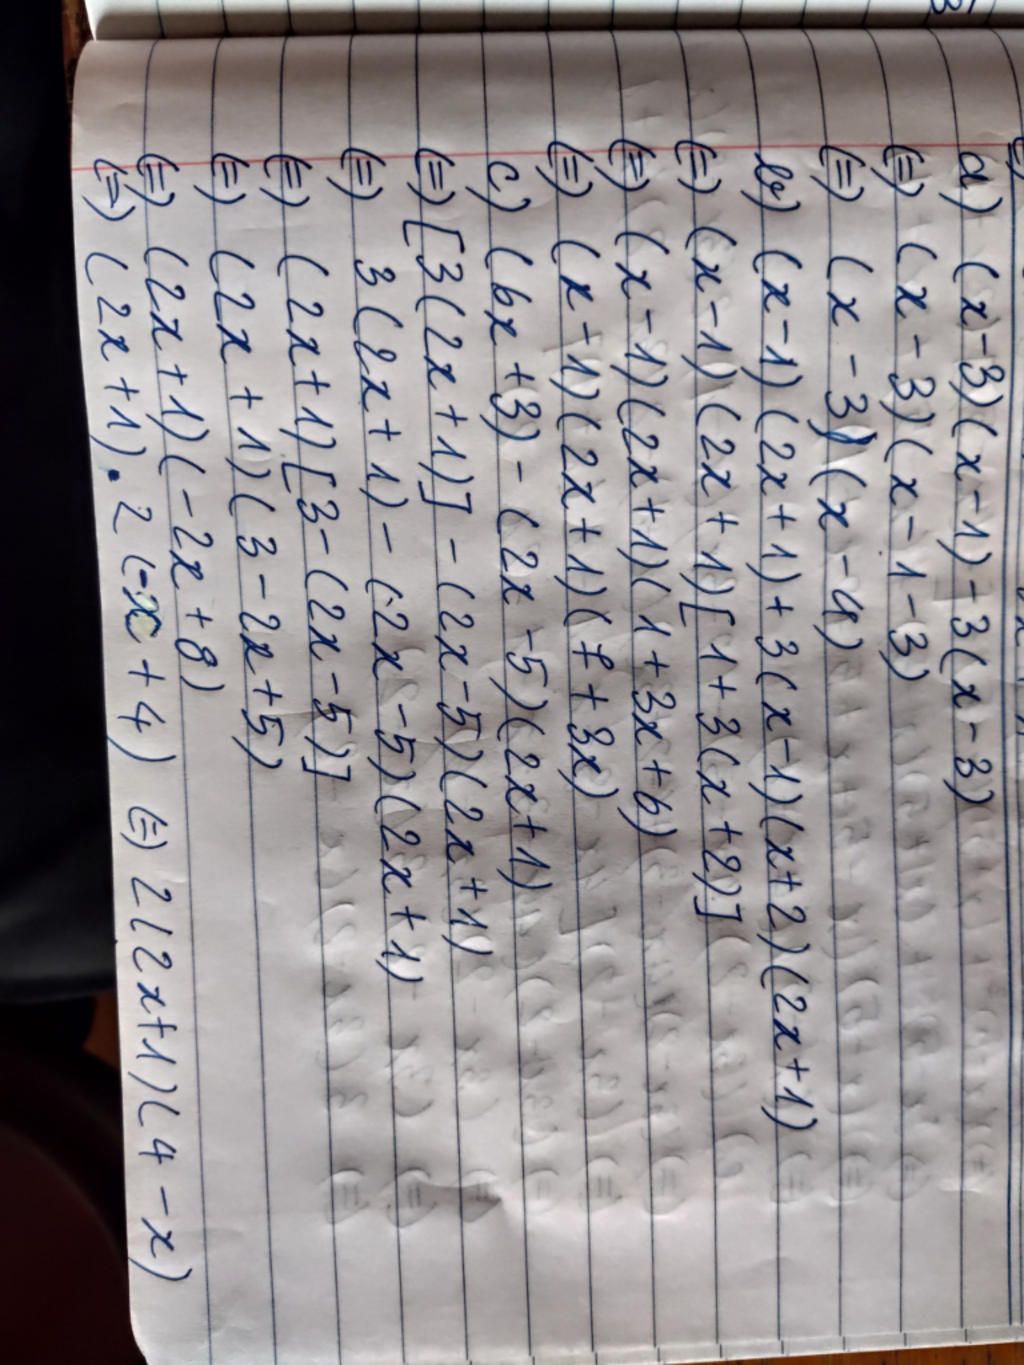 a) (x-3)(x-1)-3(x-3)
(=) (x-3)(x-1-3)
(=) (x-3)(x-4)
b) (x-1)(2x+1)+3(x-1)(x+2)(2x+1)
(=) (x-1)(2x+1)[1+3(x+2)]
(=) (x-1)(2x+1)(1+3x+6)
(=) (x-1)(2x+1)(7+3x)
c) (6x+3)-(2x-5)(2x+1)
(=) [3(2x+1)]-(2x-5)(2x+1)
(=) 3(2x+1)-(2x-5)(2x+1)
(=) (2x+1)[3-(2x-5)]
(=) (2x+1)(3-2x+5)
(=) (2x+1)(-2x+8)
(=) (2x+1).2(-x+4) (=) 2(2x+1)(4-x)